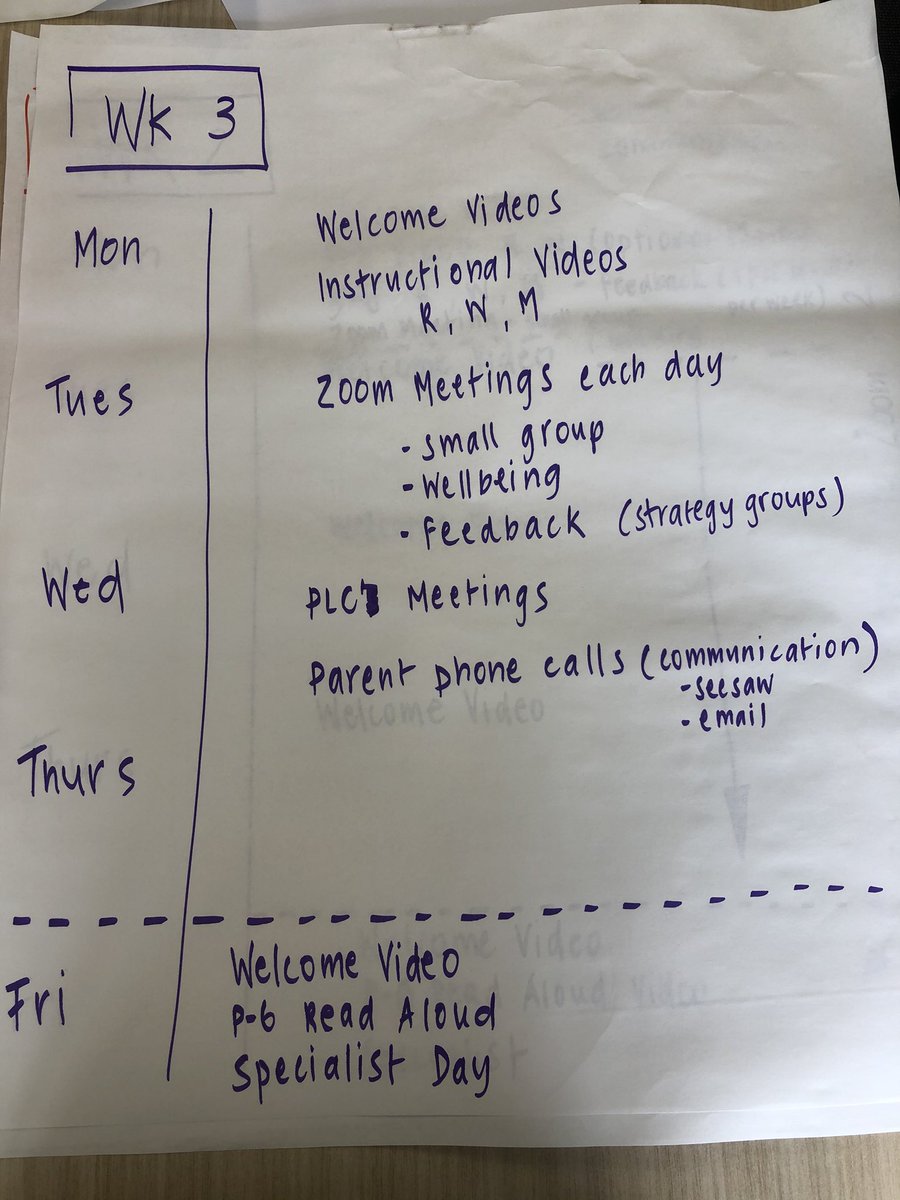 Wk 3
Mon
Welcome Videos
Instructional Videos
R, W, M
Tues
Zoom Meetings each day
- small group
- Wellbeing
- Feedback (strategy groups)
Wed
PLC Meetings
Parent phone calls (communication)
- seesaw
- email
Thurs
Fri
Welcome Video
P-6 Read Aloud
Specialist Day